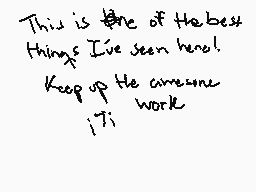 This is one of the best
things I've seen here!
Keep up the awesome
work
¡Ti